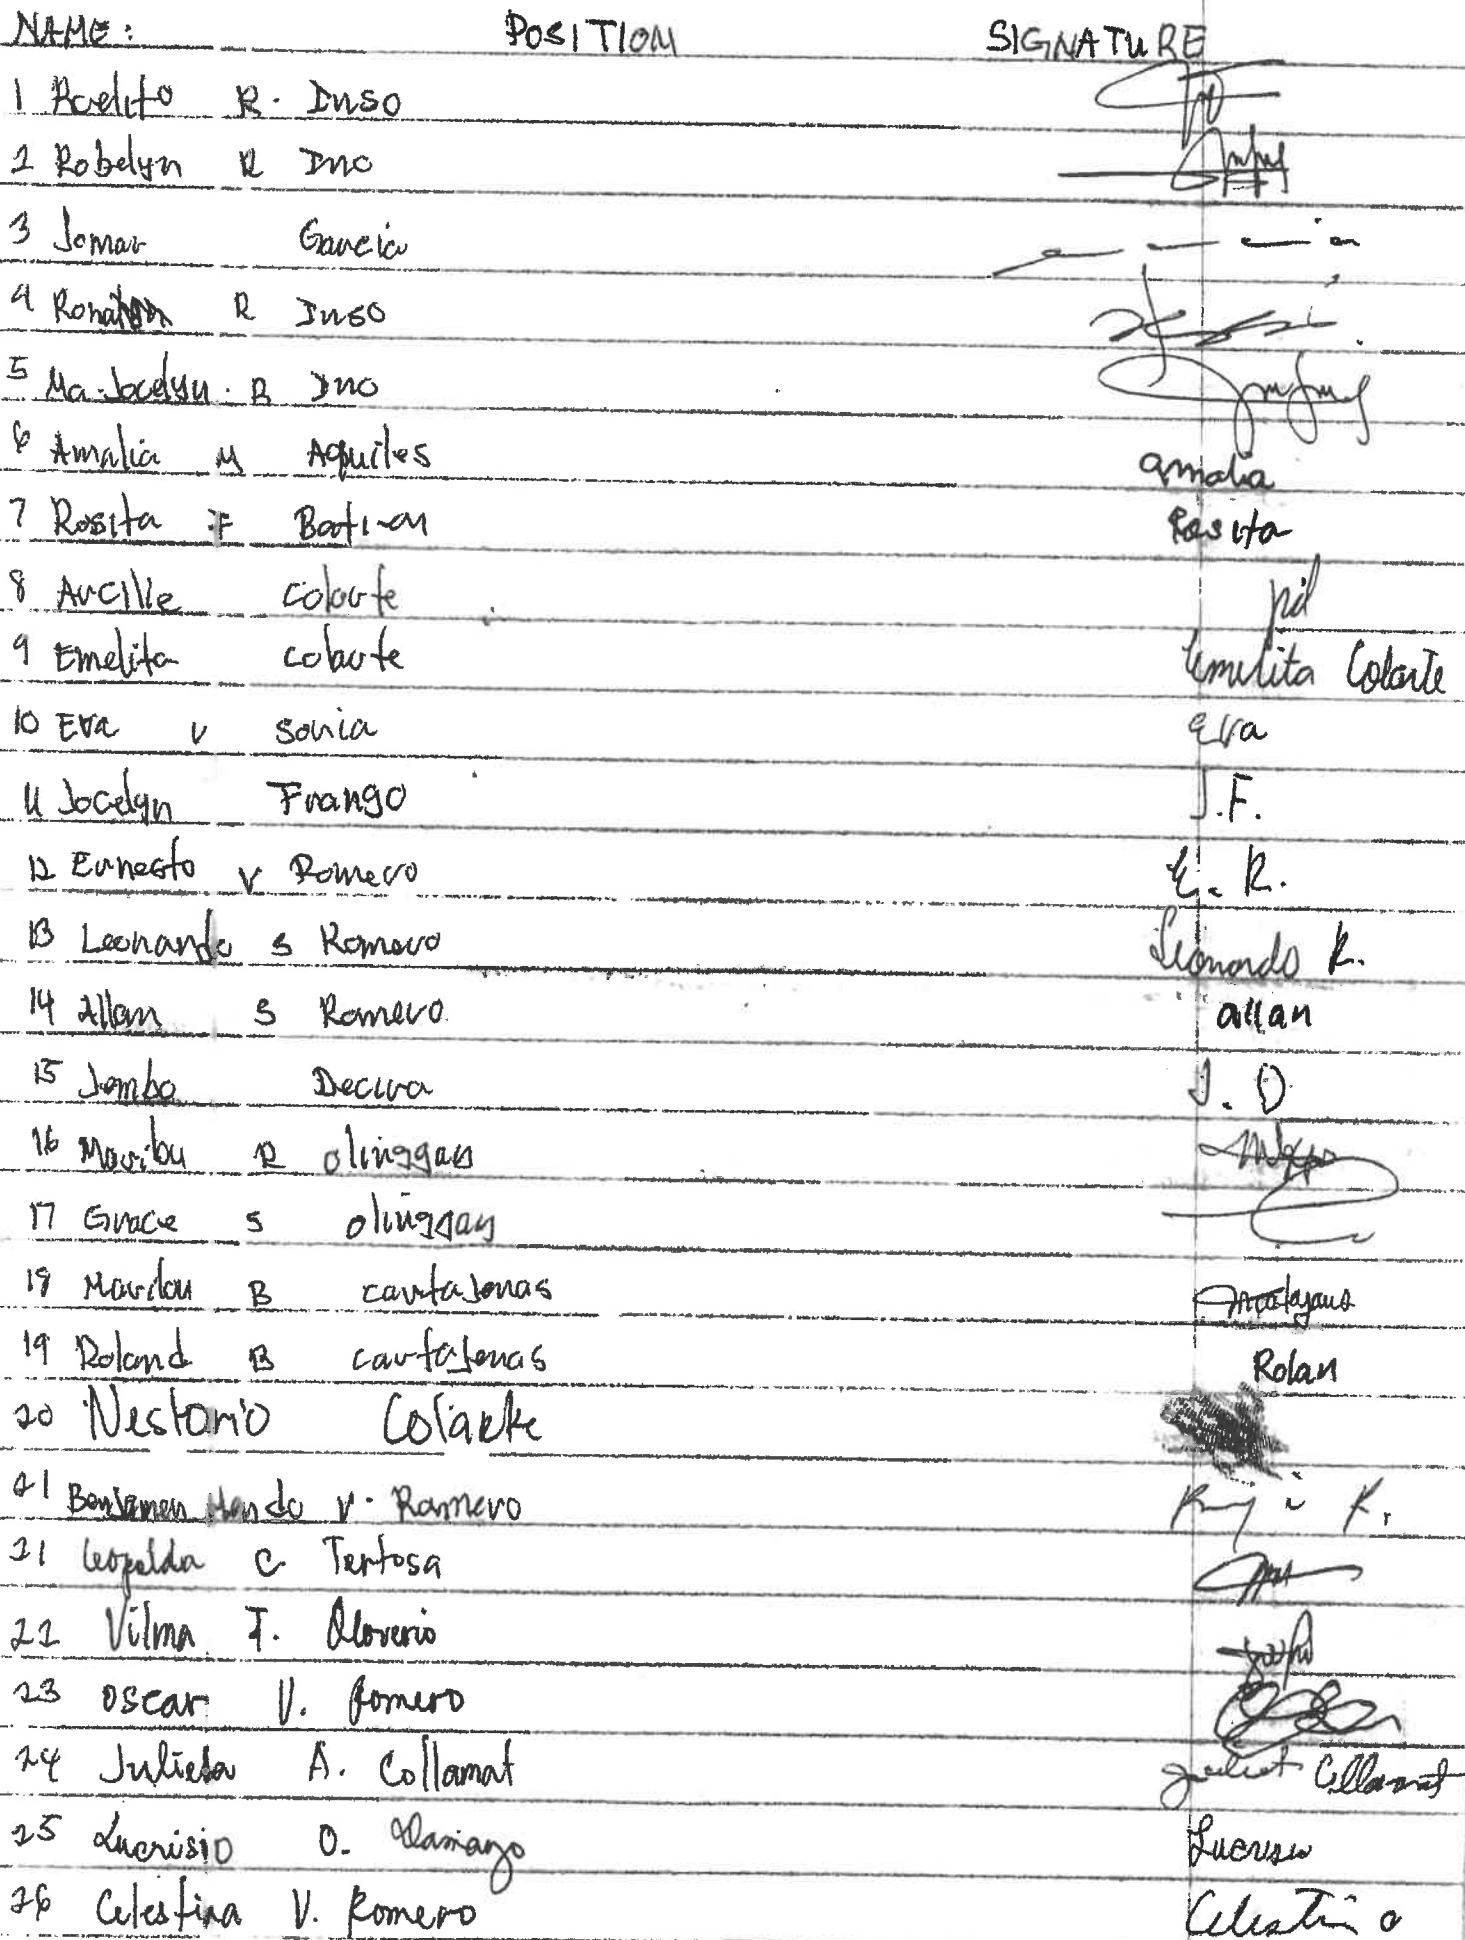 NAME: POSITION SIGNATURE
1 Roelito R. Inso
2 Robelyn R Ino
3 Jomar Garcia
4 R Inso
5 Ma. Jocelyn. R Ino
6 Amalia M Aquiles amalia
7 Rosita F Rosita
8 Arcille Colarte
9 Emelita Colarte Emelita Colarte
10 Eva V Soria Eva
11 Jocelyn Frango J.F.
12 Ernesto V Romero E. R.
13 Leonardo S Romero Leonardo R.
14 Allan S Romero allan
15 Jombo Decira J. D
16 R olinggay
17 Grace S olinggay
18 Marilou B cartajenas
19 Roland B cartajenas Rolan
20 Nestorio Colarte
21 Benjamen V. Romero R.
21 Leopolda C Tertosa
22 Vilma T. Oloverio
23 Oscar V. Romero
24 Julieta A. Collamat Collamat
25 Lucrisio O.
26 Celestina V. Romero Celestina